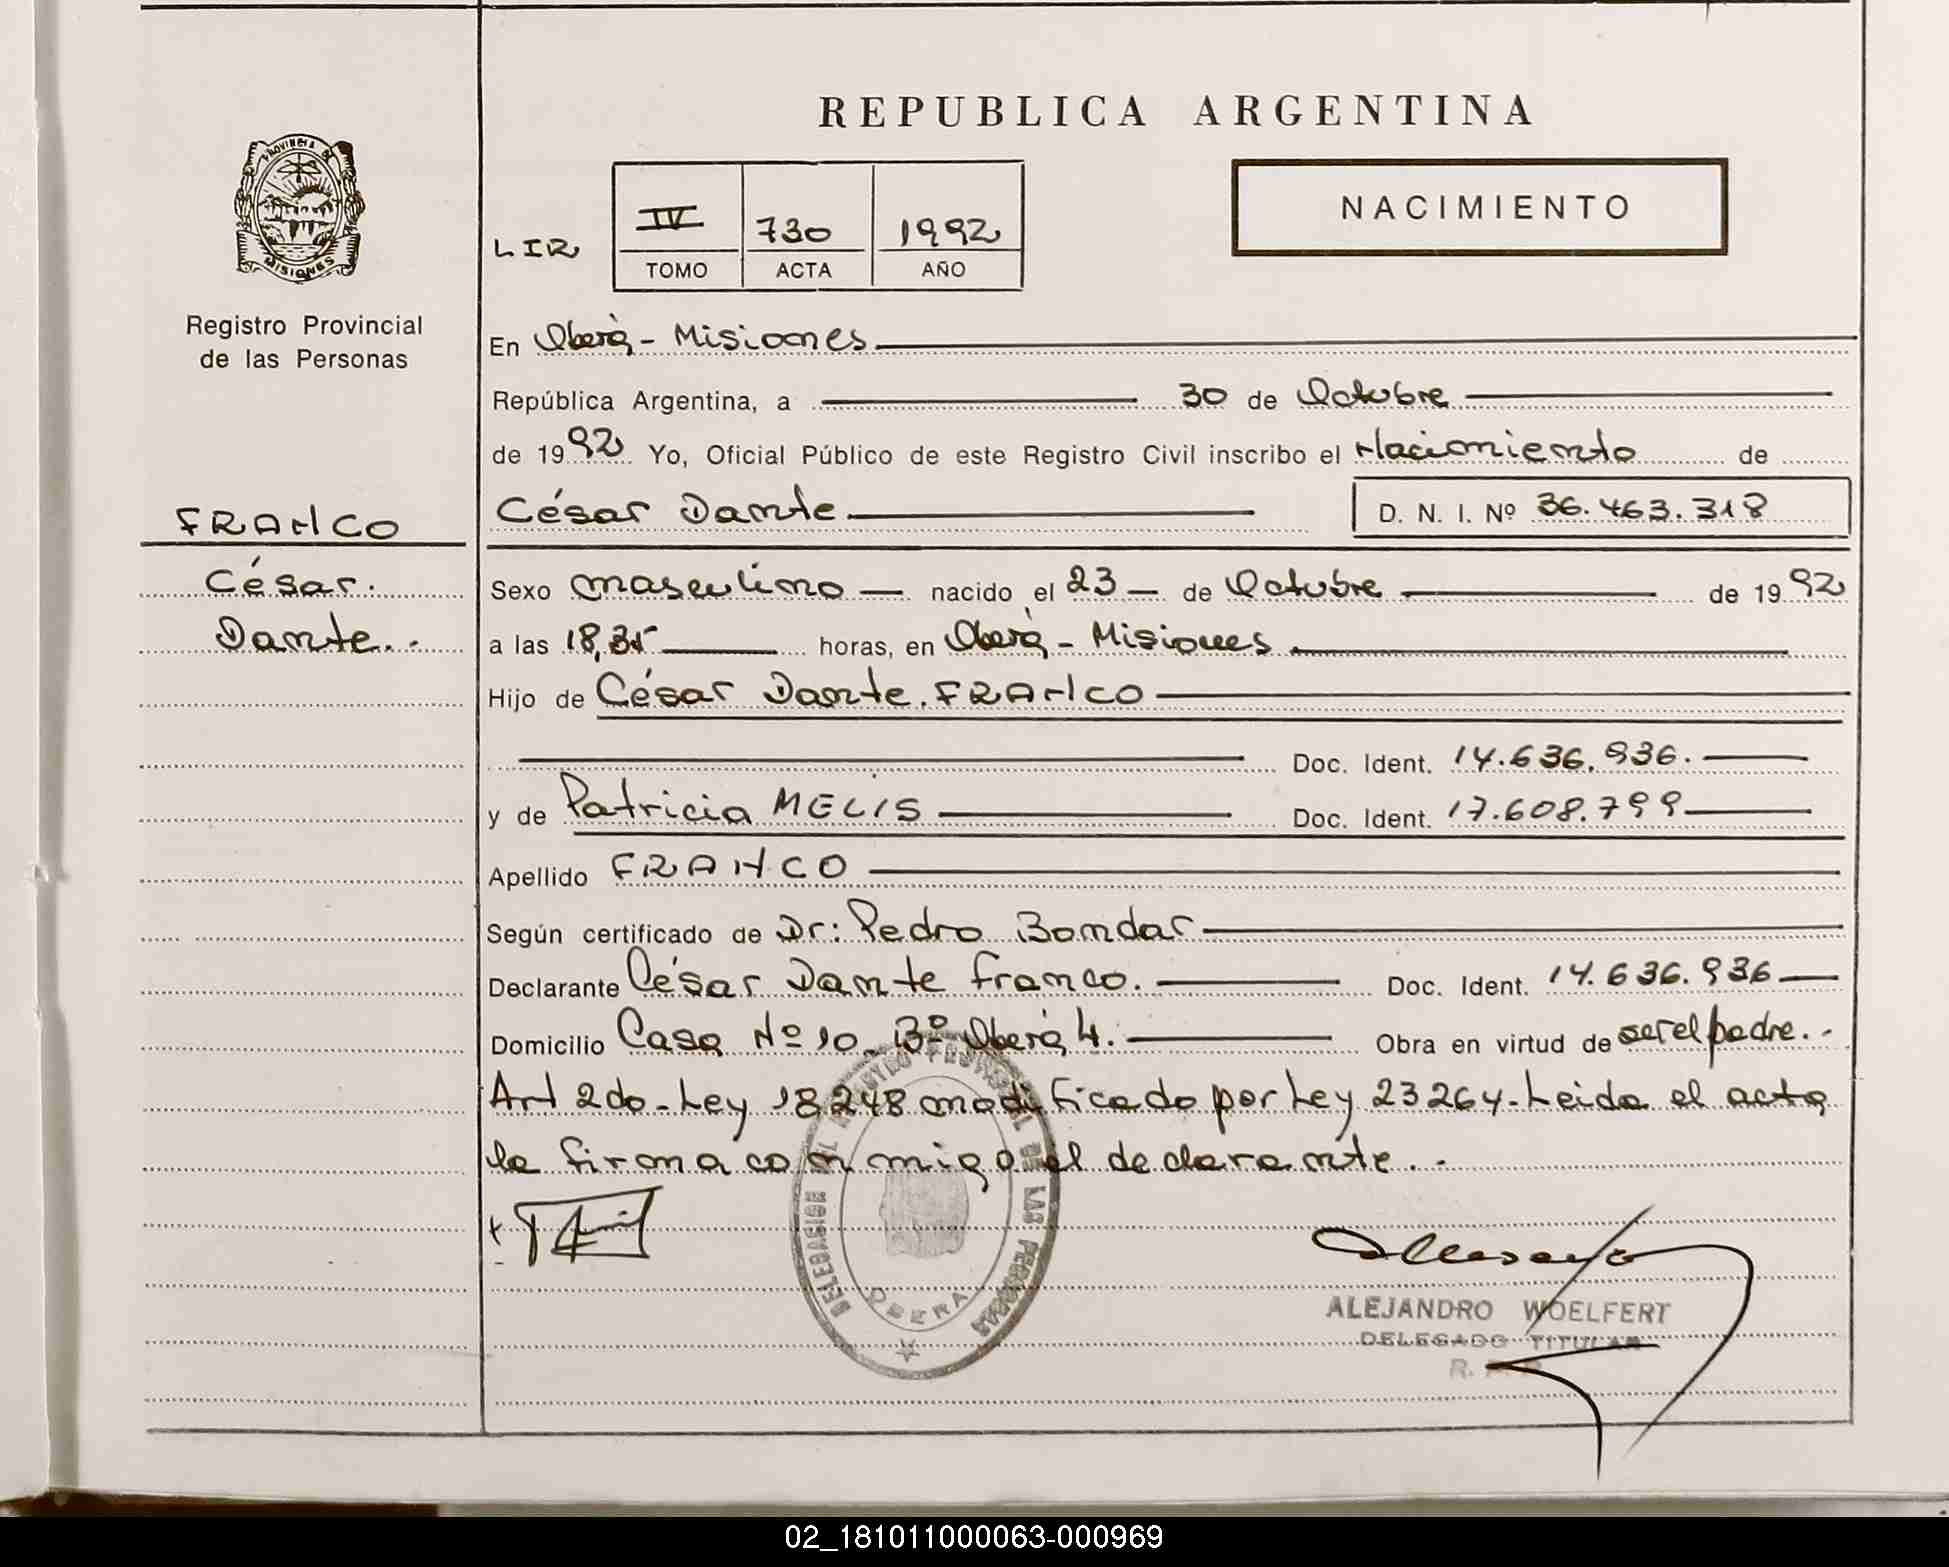 REPUBLICA ARGENTINA
PROVINCIA DE MISIONES
Registro Provincial
de las Personas
NACIMIENTO
LIR
IV 730 1992
TOMO ACTA AÑO
En Oberá - Misiones
República Argentina, a 30 de Octubre
de 1992 Yo, Oficial Público de este Registro Civil inscribo el Nacimiento de
FRANCO
César Dante D. N. I. Nº 36.463.318
César.
Sexo masculino nacido el 23 de Octubre de 1992
Dante.
a las 18,35 horas, en Oberá - Misiones
Hijo de César Dante. FRANCO
Doc. Ident. 14.636.936.
y de Patricia MELIS Doc. Ident. 17.608.799
Apellido FRANCO
Según certificado de Dr: Pedro Bondar
Declarante César Dante Franco. Doc. Ident. 14.636.936
Domicilio Casa Nº 10 Bº Oberá 4. Obra en virtud de ser el padre.-
Art 2do - Ley 18248 modificado por Ley 23264 - Leida el acta
la firma con migo el declarante.-
DELEGACION DEL REGISTRO PROVINCIAL DE LAS PERSONAS
OBERA
ALEJANDRO WOELFERT
DELEGADO TITULAR
02_181011000063-000969